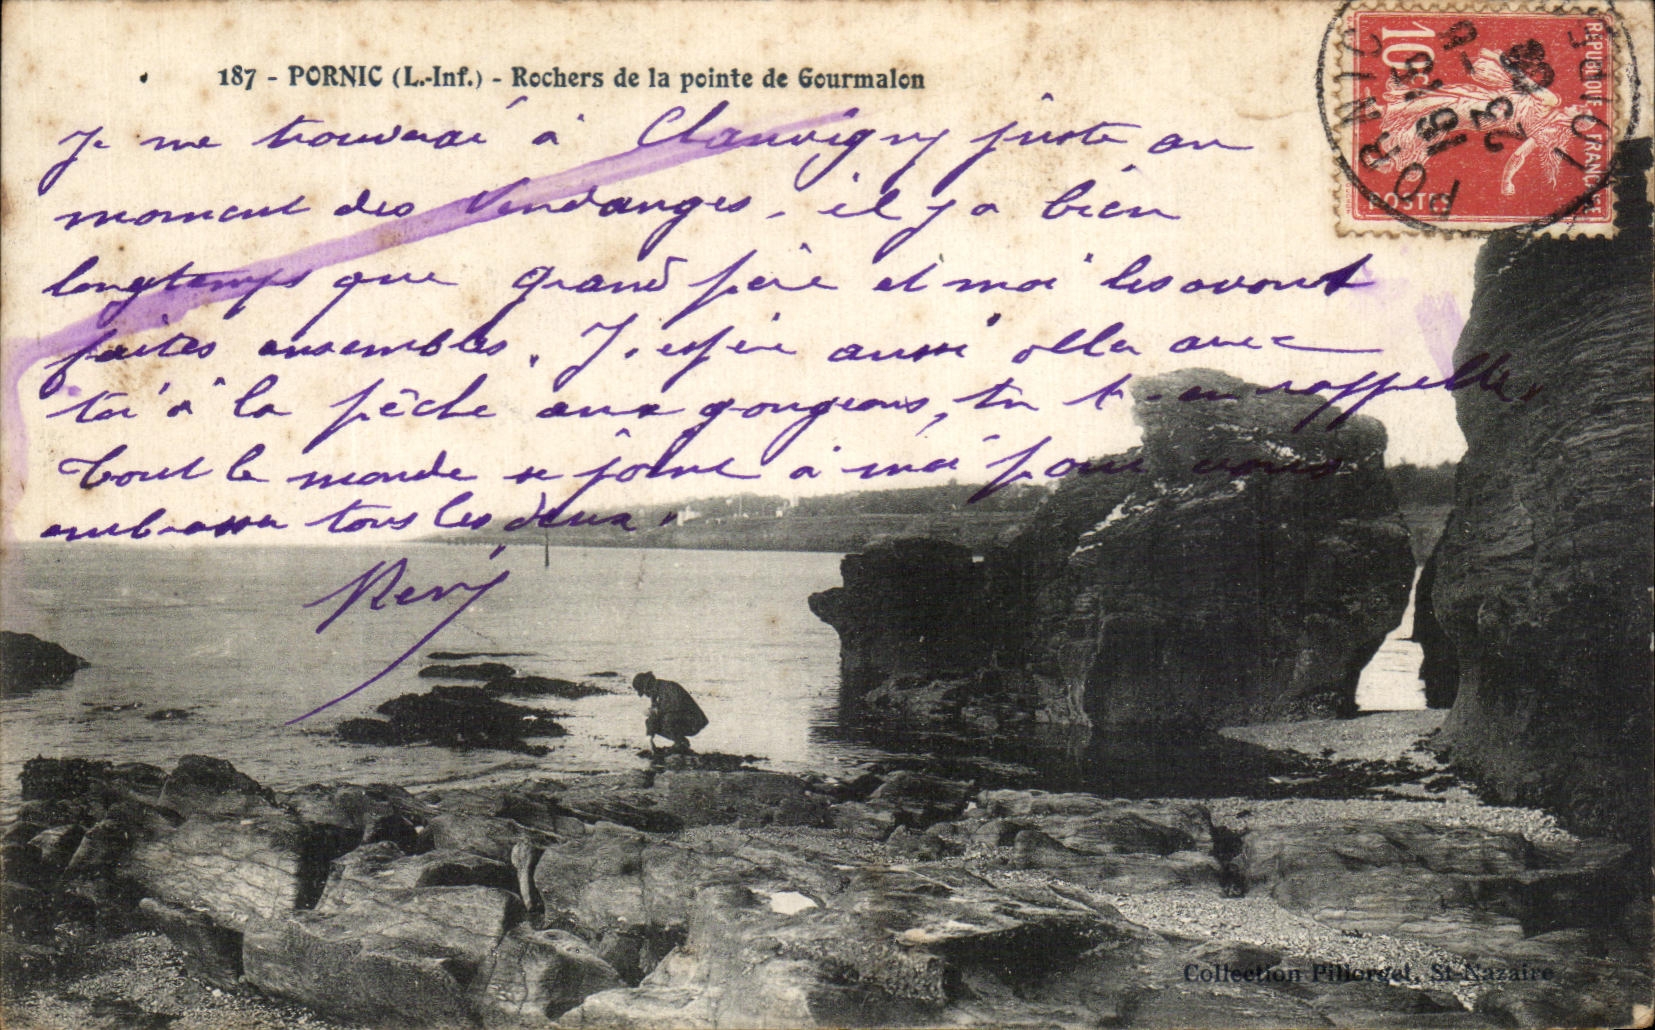 187 - PORNIC (L.-Inf.) - Rochers de la pointe de Gourmalon
10c
REPUBLIQUE FRANÇAISE
POSTES
PORNIC
16 15
23 - 8
08
Je me trouverai à Chauvigny juste au
moment des Vendanges, il y a bien
longtemps que grand père et moi les avont
faites ensembles. J'espère aussi aller avec
toi à la pêche aux gougeons, tu t'en rappelles,
tout le monde se joint à moi pour vous
embrasser tous les deux.
Collection Pillorget, St-Nazaire